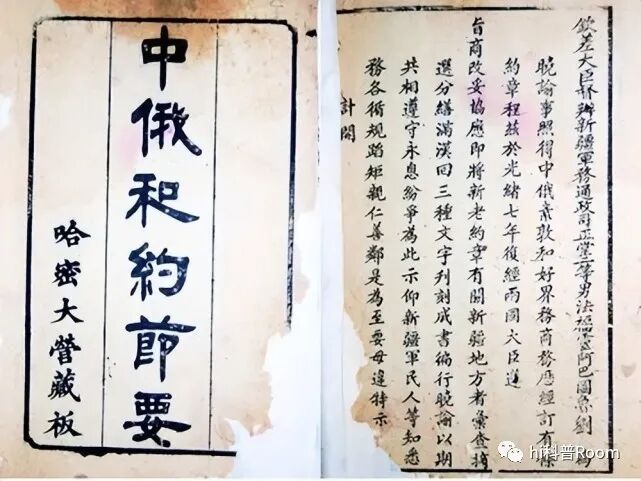 中俄和約節要
哈密大營藏板
欽差大臣督辦新疆軍務通政司正堂二等男法福靈阿巴圖魯劉 為
曉諭事照得中俄素敦和好界務商務歷經訂有條
約章程茲於光緒七年復經兩國大臣遵
旨商改妥協應即將新老約章有關新疆地方者彙查摘
選分繕滿漢回三種文字刊刻成書徧行曉諭以期
共相遵守永息紛爭為此示仰新疆軍民人等知悉
務各循規蹈矩親仁善鄰是為至要毋違特示
計開
hi科普Room